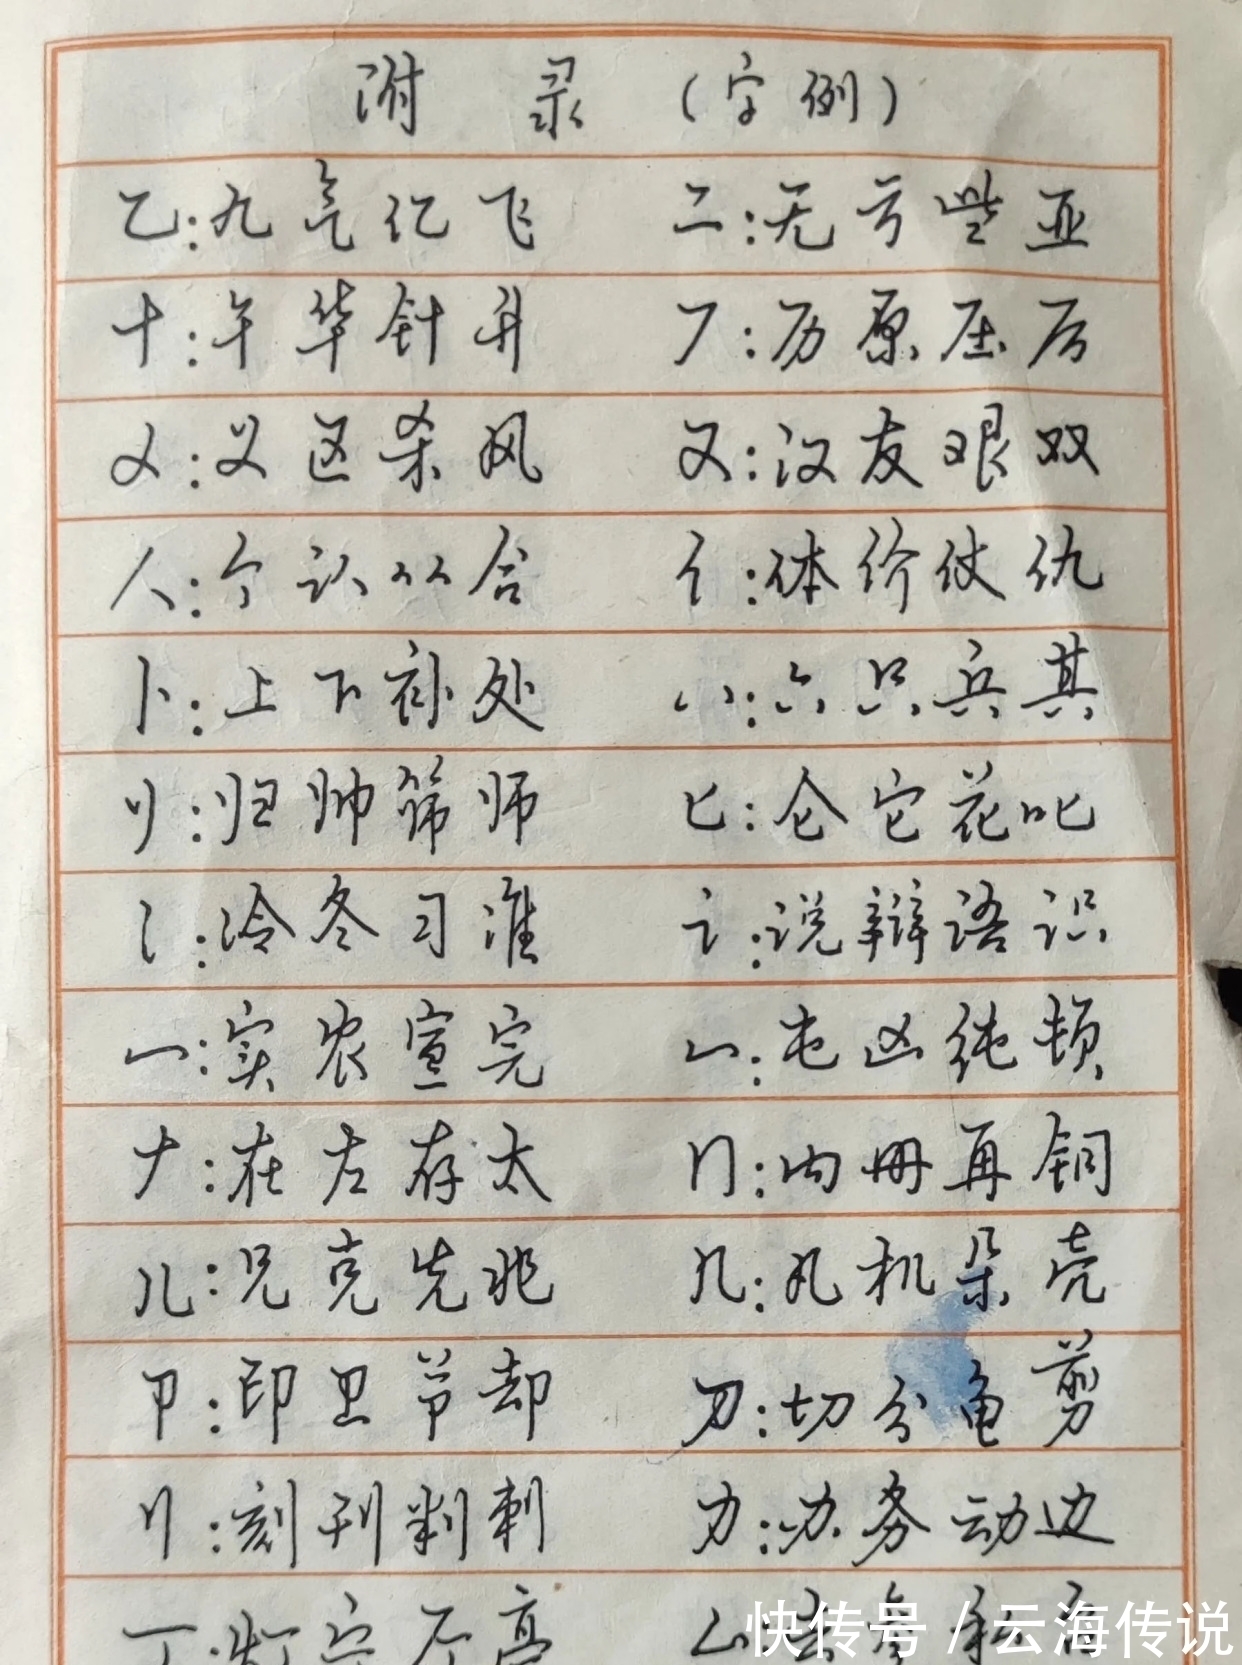 附 录 (字例)
乙:九气亿飞 二:无亏些亚
十:午华针升 厂:历原压后
乂:义区杀风 又:汉友艰双
人:个认从合 亻:体价仗仇
卜:上下补处 八:六只兵其
刂:归帅筛师 匕:仑它花叱
冫:冷冬习准 讠:说辩语识
冖:实农宣完 凵:屯凶纯顿
ナ:在左存太 冂:内册再铜
儿:兄克先兆 几:凡机朵壳
卩:印卫节却 刀:切分龟剪
刂:刻刊判刺 力:办务动边
丁:灯宁 亭 厶:去参
快传号 / 云海传说